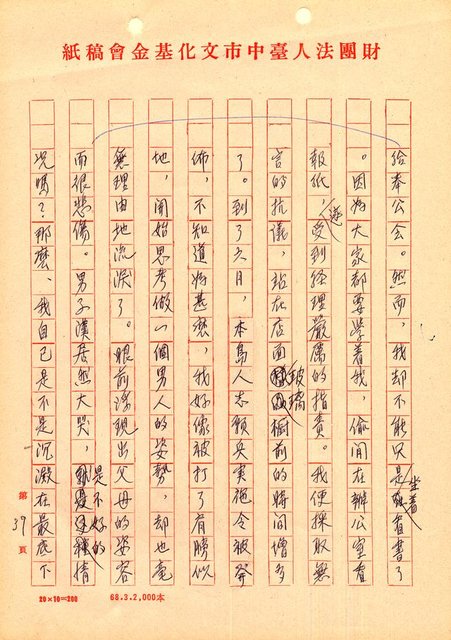 財團法人臺中市文化基金會稿紙
給奉公会。然而，我却不能只是坐着看書了
。因為大家都要学着我，偷閒在辦公室看
報紙，遂受到經理嚴厲的指責。我便採取無
言的抗議，站在店面玻璃櫥前的時間增多
了。到了六月，本島人志願兵实施令被發
佈，不知道為甚麼，我好像被打了肩膀似
地，開始思考做一個男人的姿勢，却也毫
無理由地流淚了。眼前浮現出父母的姿容
而很悲傷。男子漢居然大哭，是不好的情
況嗎？那麼，我自己是不是沉澱在最底下
第39頁
20×10=200 68.3.2,000本